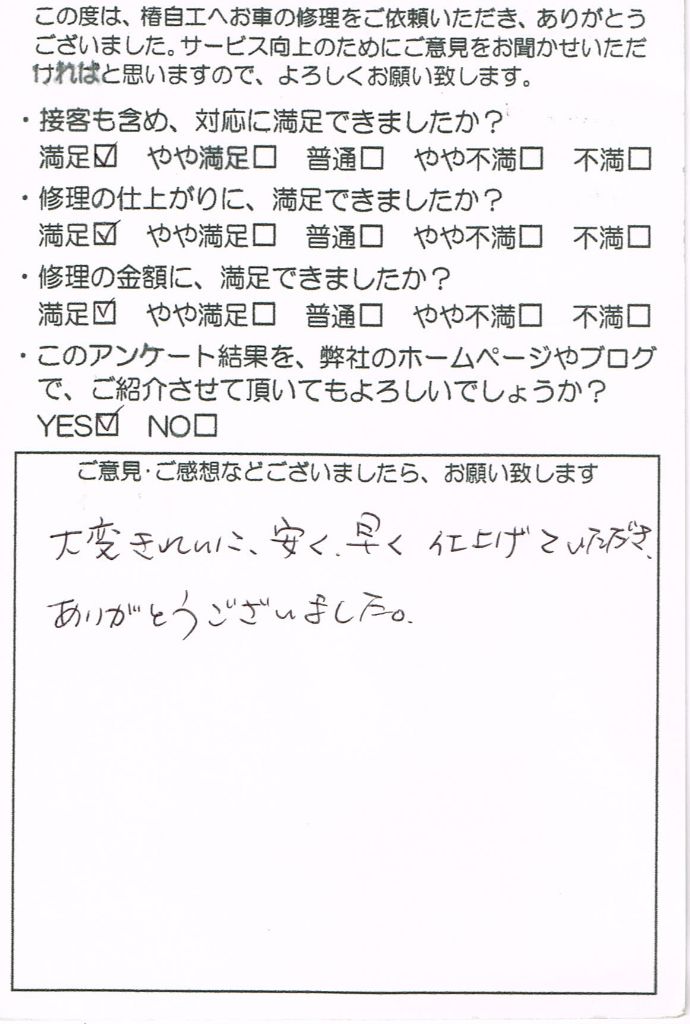 この度は、椿自工へお車の修理をご依頼いただき、ありがとう
ございました。サービス向上のためにご意見をお聞かせいただ
ければと思いますので、よろしくお願い致します。
・接客も含め、対応に満足できましたか？
満足☑ やや満足□ 普通□ やや不満□ 不満□
・修理の仕上がりに、満足できましたか？
満足☑ やや満足□ 普通□ やや不満□ 不満□
・修理の金額に、満足できましたか？
満足☑ やや満足□ 普通□ やや不満□ 不満□
・このアンケート結果を、弊社のホームページやブログ
で、ご紹介させて頂いてもよろしいでしょうか？
YES☑ NO□
ご意見・ご感想などございましたら、お願い致します
大変きれいに、安く、早く 仕上げていただき、
ありがとうございました。